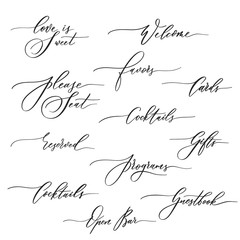 love is
sweet
Welcome
favors
Cards
please
Seat
Cocktails
Reserved
Gifts
Programs
Cocktails
Guestbook
Open Bar